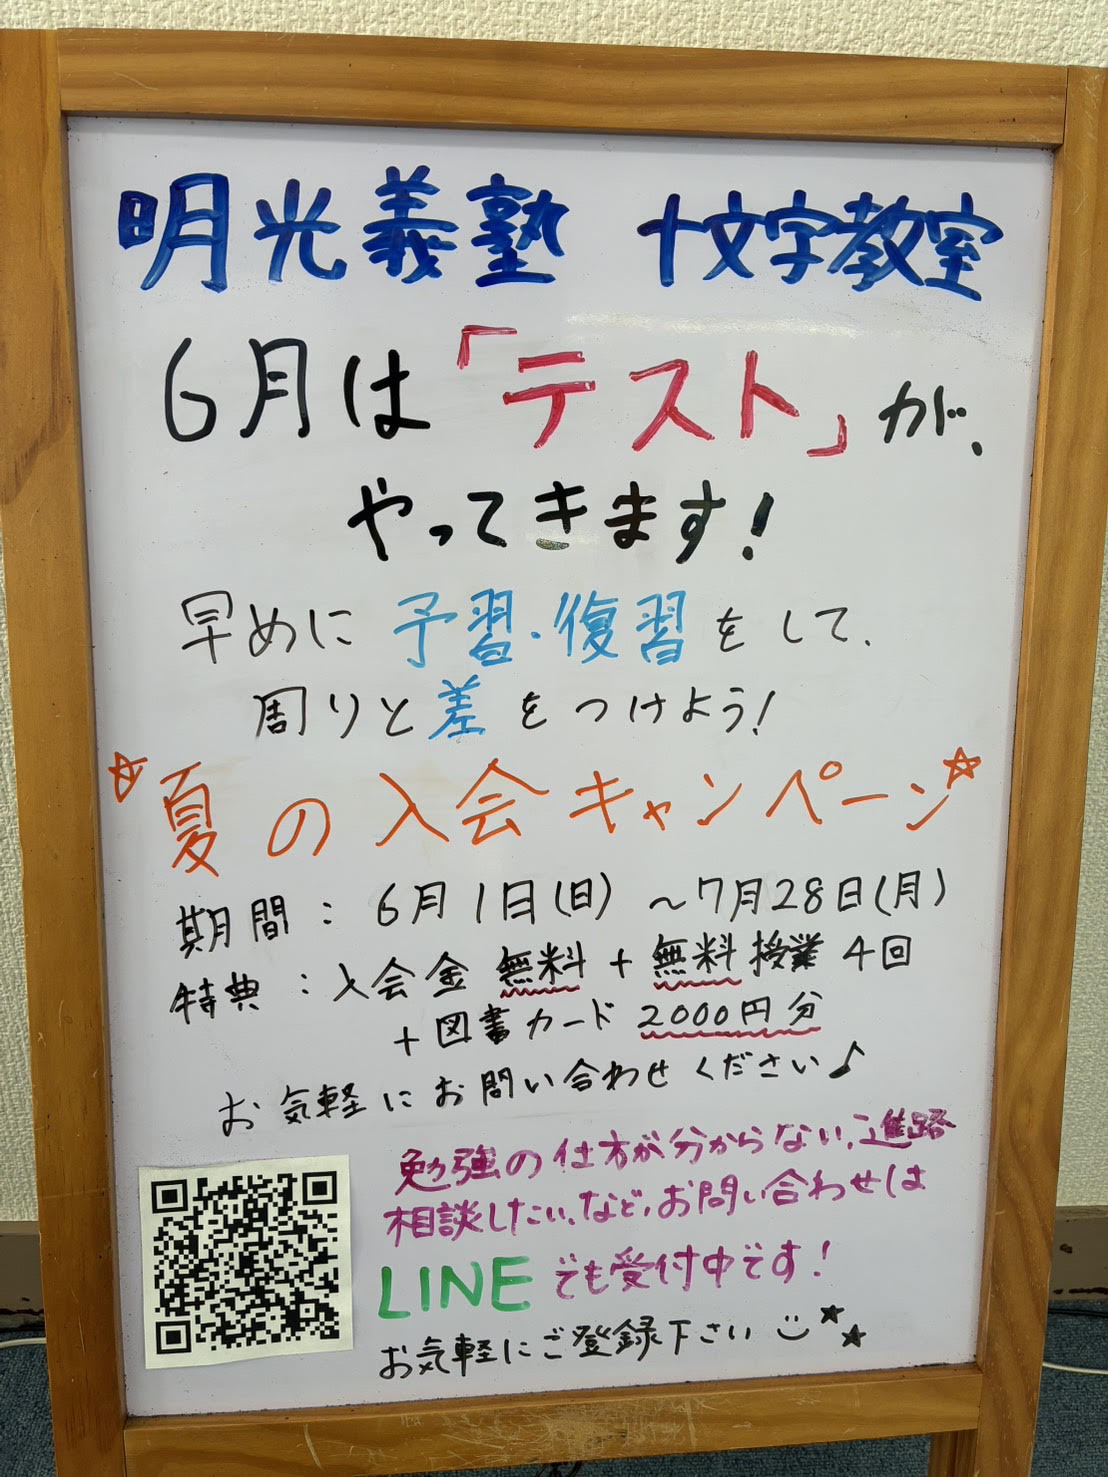 明光義塾 十文字教室
6月は「テスト」が、
やってきます!
早めに 予習・復習をして、
周りと差をつけよう!
☆夏の入会キャンペーン☆
期間:6月1日(日)~7月28日(月)
特典:入会金 無料+無料授業4回
+図書カード 2000円分
お気軽にお問い合わせください♪
勉強の仕方が分からない、進路
相談したい、など、お問い合わせは
LINEでも受付中です!
お気軽にご登録下さい☺★★